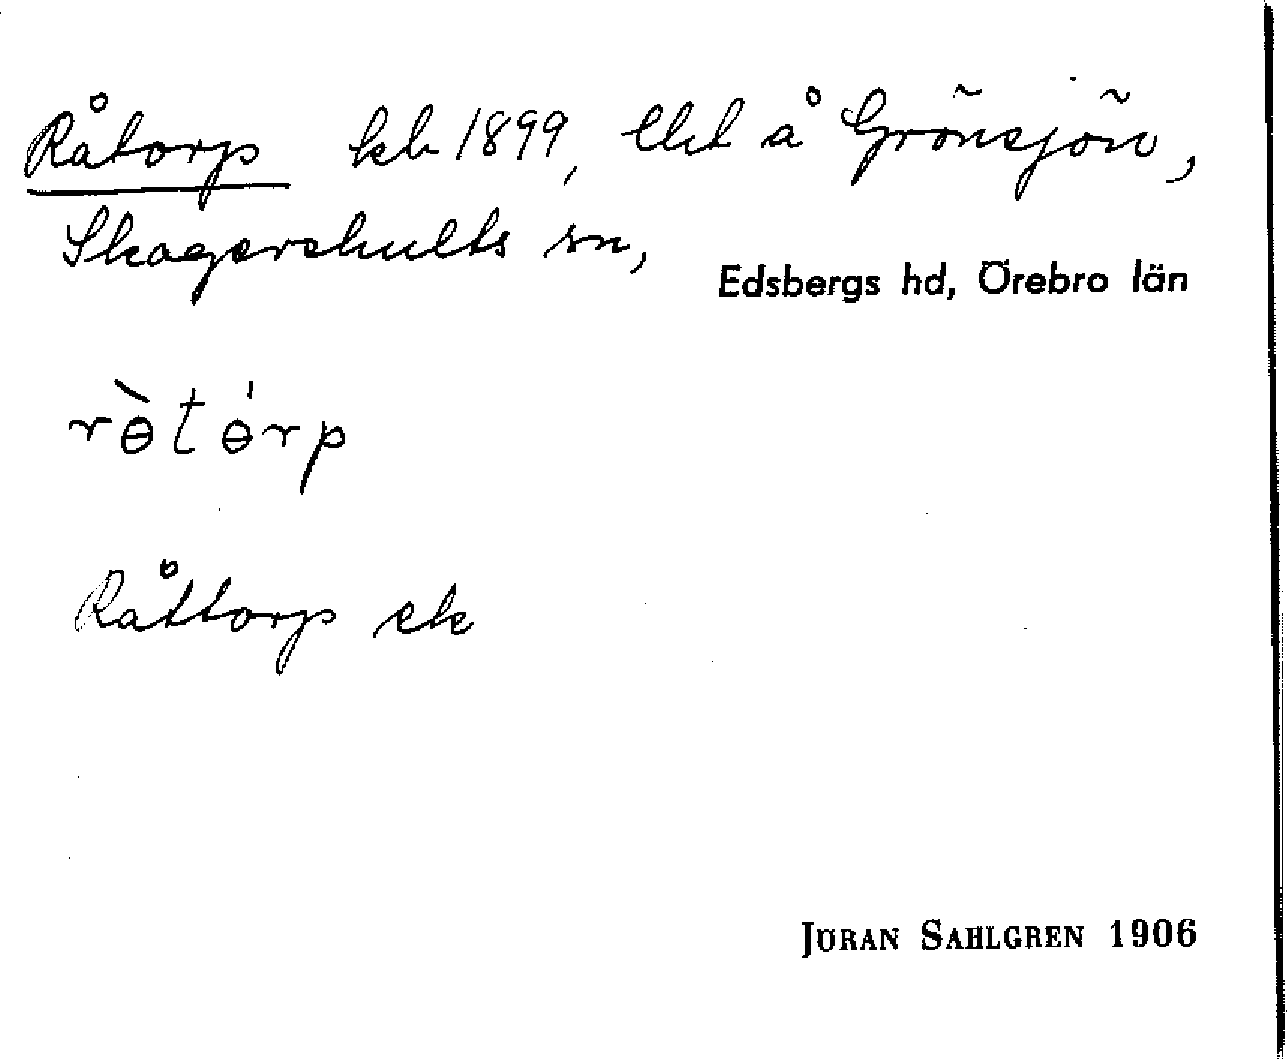 Råtorp kb 1899, lht å Grönsjön,
Skagershults sn,
Edsbergs hd, Örebro län
rɵ̀tɵ́rp
Råttorp ek
JÖRAN SAHLGREN 1906